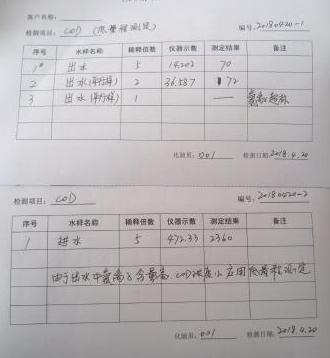 客户名称:
检测项目: COD (低量程测定) 编号: 20180420-1
序号 水样名称 稀释倍数 仪器示数 测定结果 备注
1# 出水 5 14.202 70
2 出水(平行样) 2 36.587 72
3 出水(平行样) 1 — 氯离子超标
化验员: 001 检测日期: 2018.4.20
检测项目: COD 编号: 20180420-2
序号 水样名称 稀释倍数 仪器示数 测定结果 备注
1 进水 5 472.33 2360
由于出水中氯离子含量高, COD浓度小 应用低量程测定
化验员: 001 检测日期: 2018.4.20